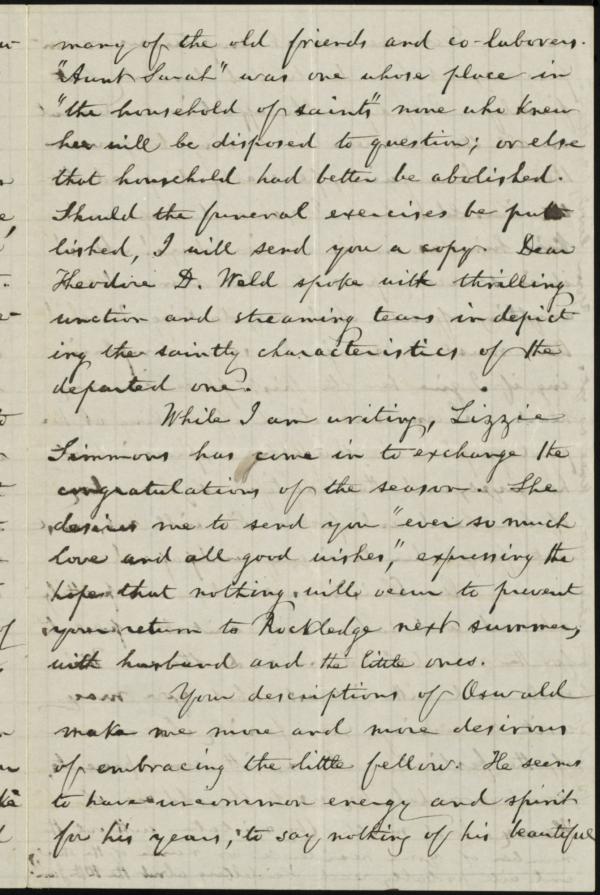 many of the old friends and co-laborers.
"Aunt Sarah" was one whose place in
"the household of saints" none who knew
her will be disposed to question; or else
that household had better be abolished.
Should the funeral exercises be pub
lished, I will send you a copy. Dear
Theodore D. Weld spoke with thrilling
unction and streaming tears in depict
ing the saintly characteristics of the
departed one.
While I am writing, Lizzie
Simmons has come in to exchange the
congratulations of the season. She
desires me to send you "ever so much
love and all good wishes," expressing the
hope that nothing will occur to prevent
your return to Rockledge next summer,
with husband and the little ones.
Your descriptions of Oswald
make me more and more desirous
of embracing the little fellow. He seems
to have uncommon energy and spirit
for his years, to say nothing of his beautiful